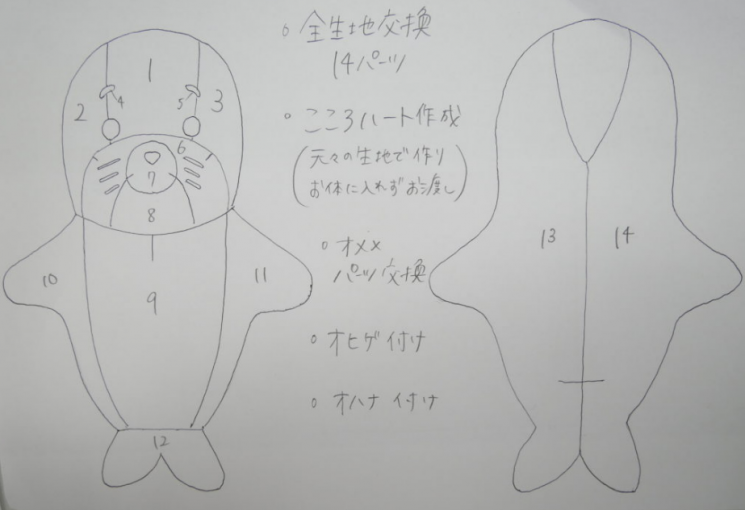 。全生地交換
14パーツ
。こころハート作成
(元々の生地で作り
お体に入れずお渡し)
。オメメ
パーツ交換
。オヒゲ付け
。オハナ付け
1
2
4
5
3
6
7
8
9
10
11
12
13
14